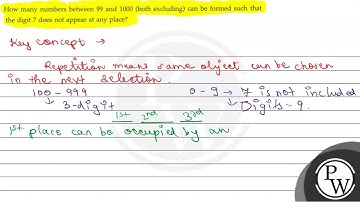 How many numbers between 99 and 1000 (both excluding) can be formed such that
the digit 7 does not appear at any place?
Key concept →
Repetition means same object can be chosen
in the next selection.
100 - 999 0 - 9 → 7 is not included
↓ 3-digit ↓ Digits = 9.
1st 2nd 3rd
1st place can be occupied by an
P
W